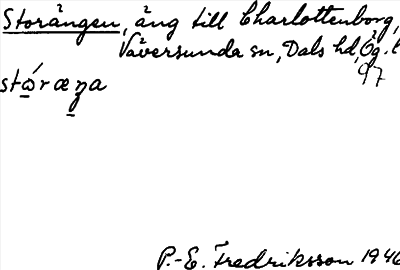 Storängen, äng till Charlottenborg,
Väversunda sn, Dals hd, Ög.
97
stǫ́ræŋa
P.-E. Fredriksson 1946